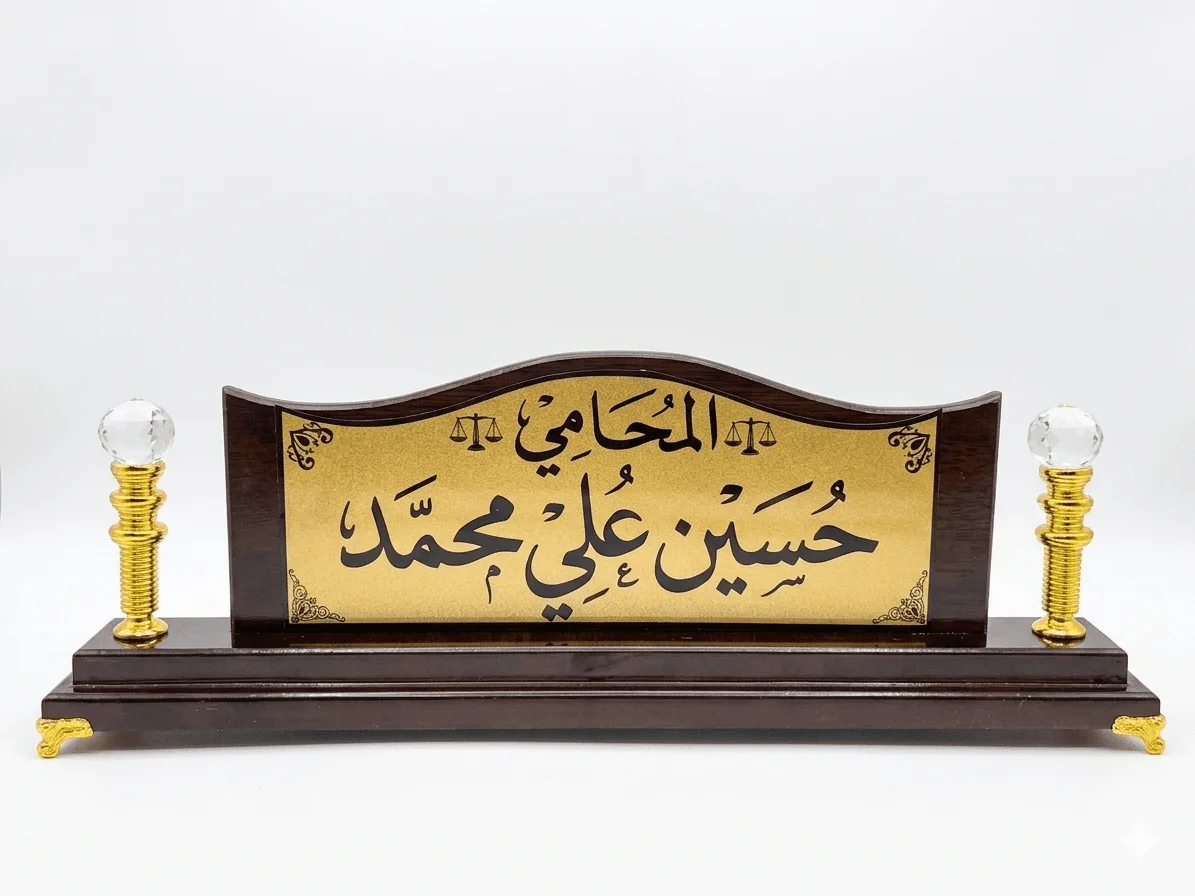 المُحَامِي
حُسَيْن عُلِي محمَّد